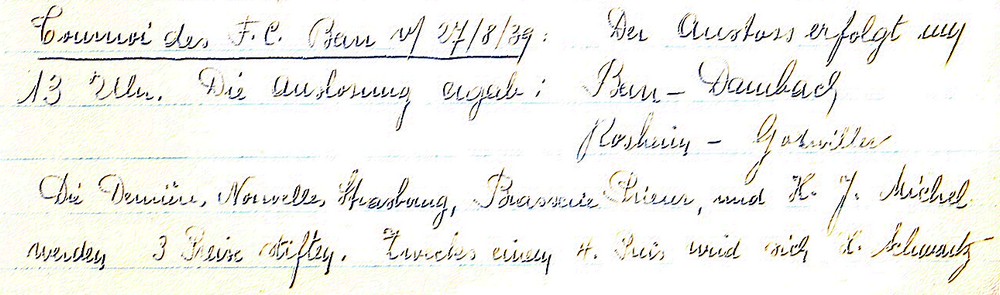 Tournoi des F.C. Barr v/ 27/8/39: Der Anstoss erfolgt um
13 Uhr. Die Auslosung ergab: Barr – Dambach
Rosheim – Goxwiller
Die Dernières Nouvelles Strasbourg, Brasserie Prieur, und H. J. Michel
werden 3 Preise stiften. Zwecks einem 4. Preis wird sich H. Schwartz